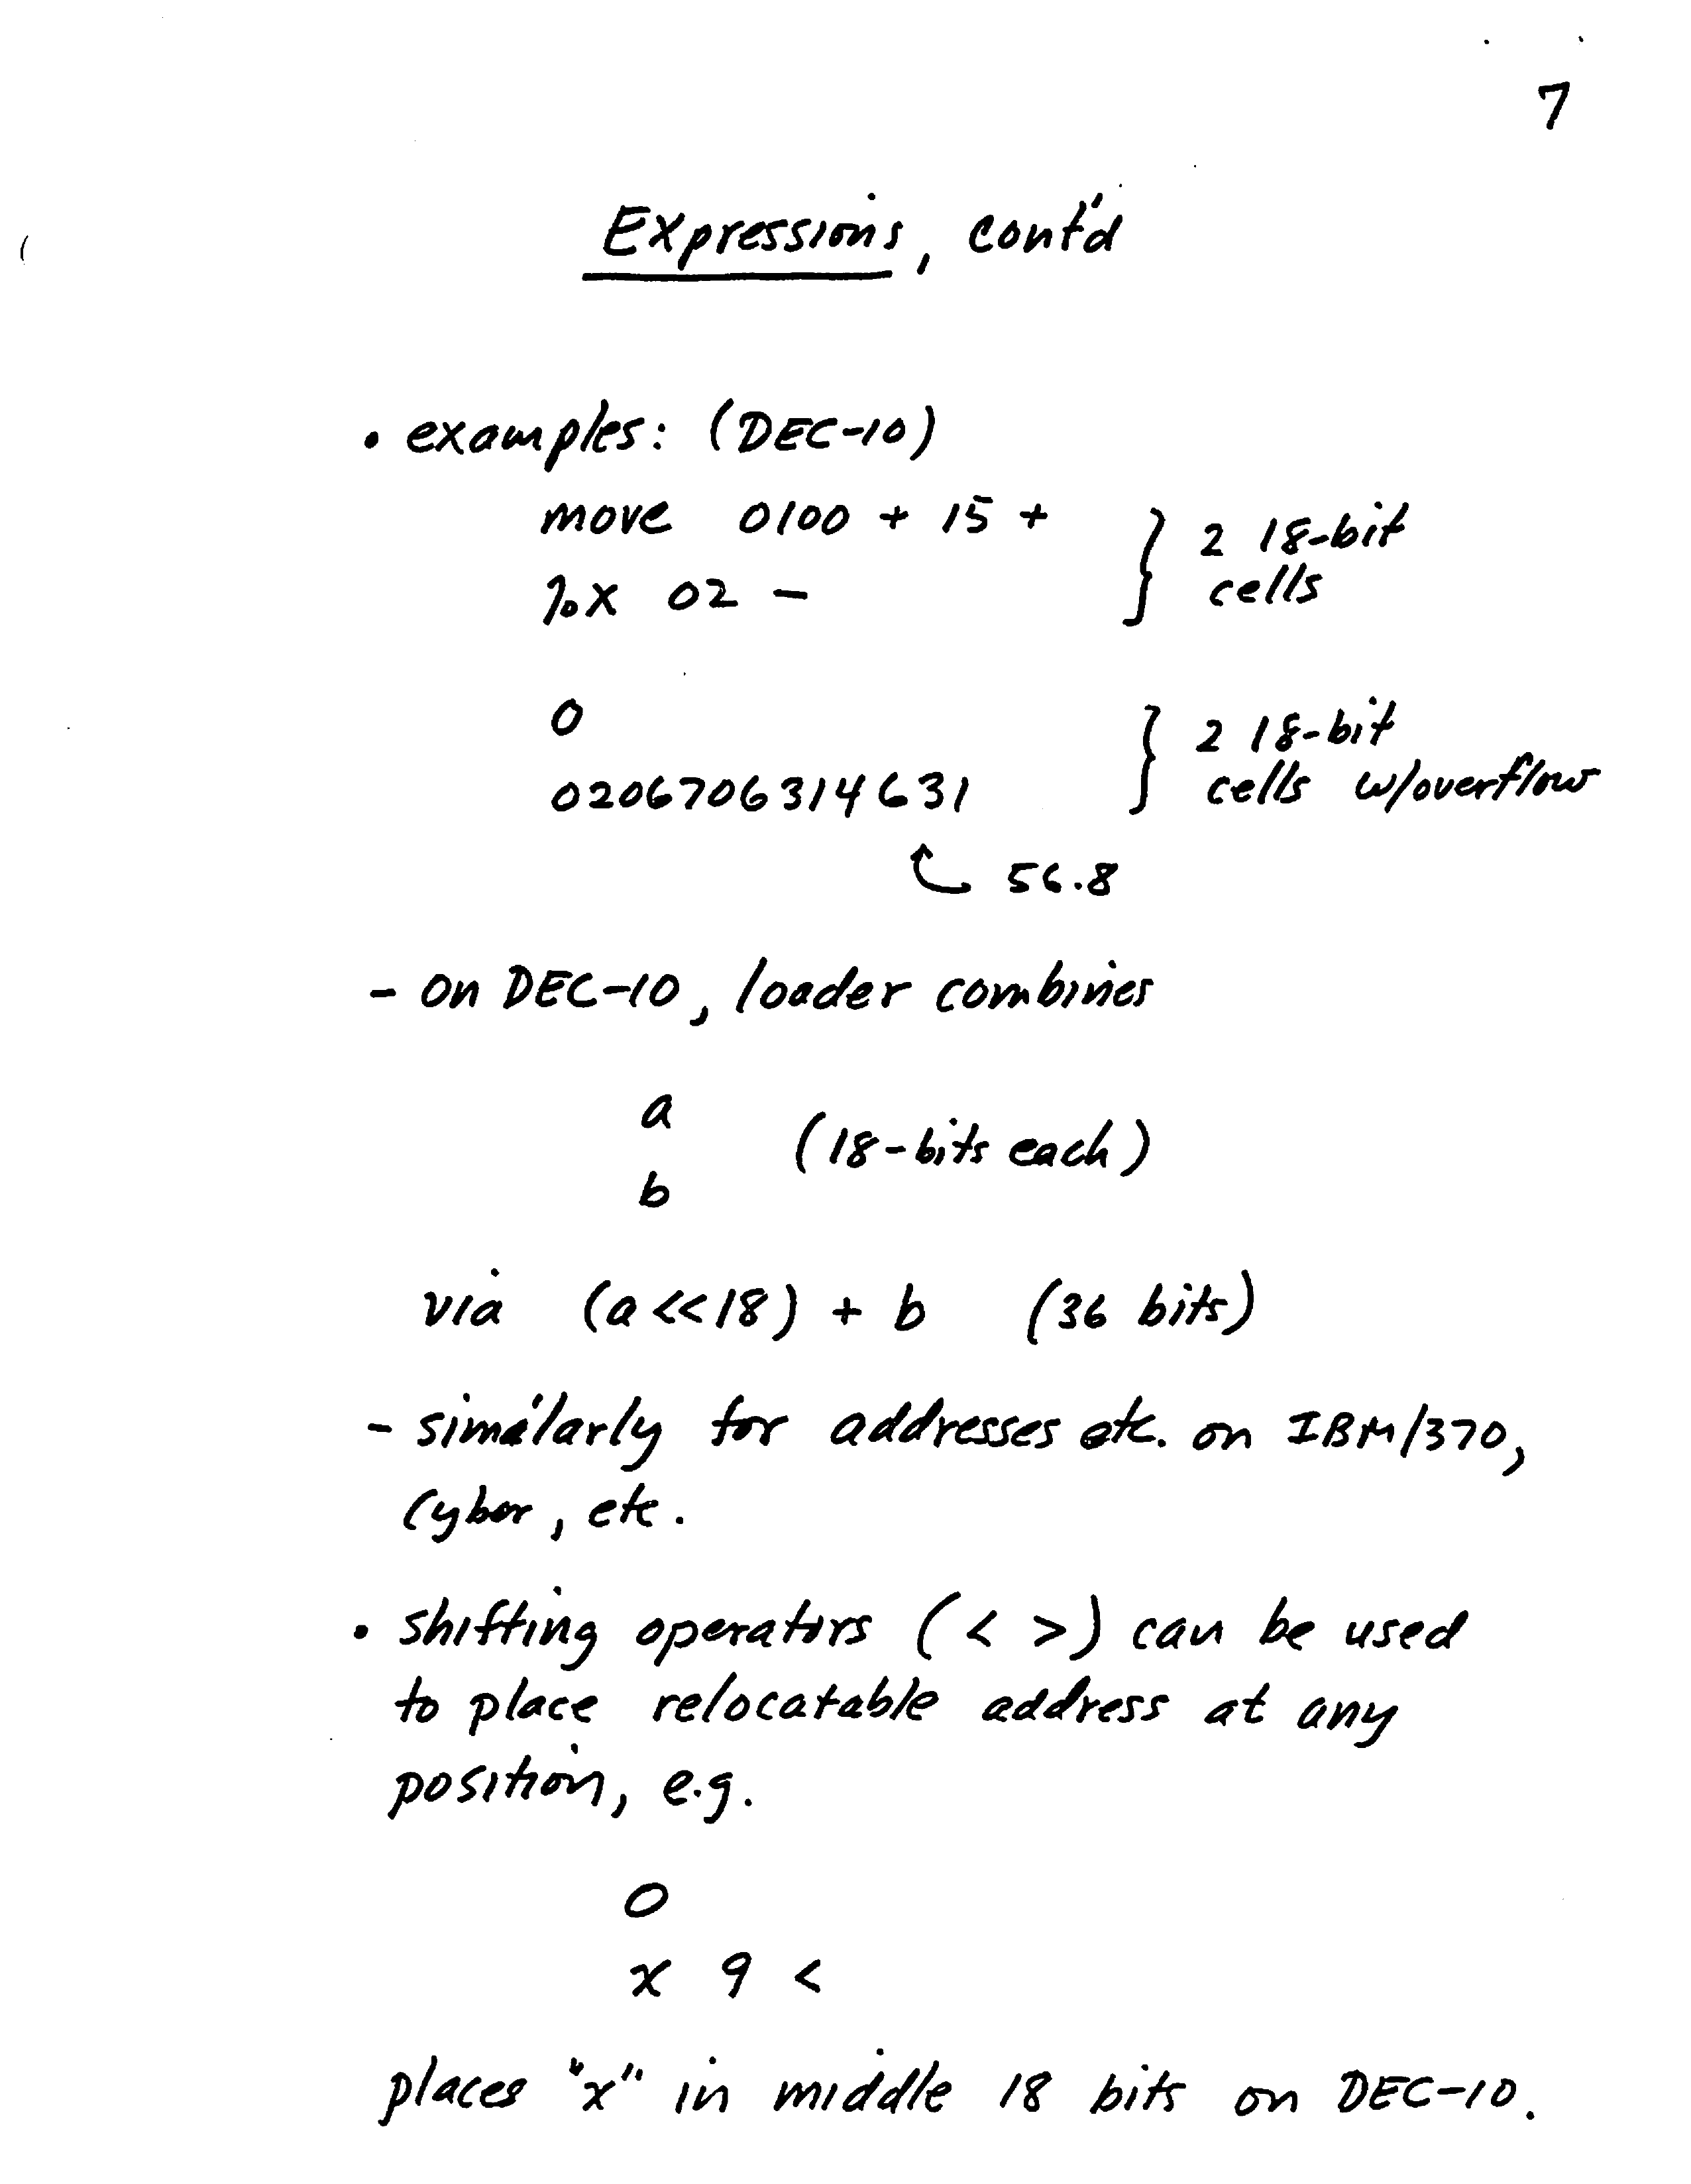 7
Expressions, cont'd
• examples: (DEC-10)
move 0100 + 15 +
%X 02 -
} 2 18-bit
cells
0
0206706314631
} 2 18-bit
cells w/overflow
56.8
- on DEC-10, loader combines
a
b
(18-bits each)
via (a << 18) + b (36 bits)
- similarly for addresses etc. on IBM/370,
Cyber, etc.
• shifting operators (< >) can be used
to place relocatable address at any
position, e.g.
0
x 9 <
places "x" in middle 18 bits on DEC-10.